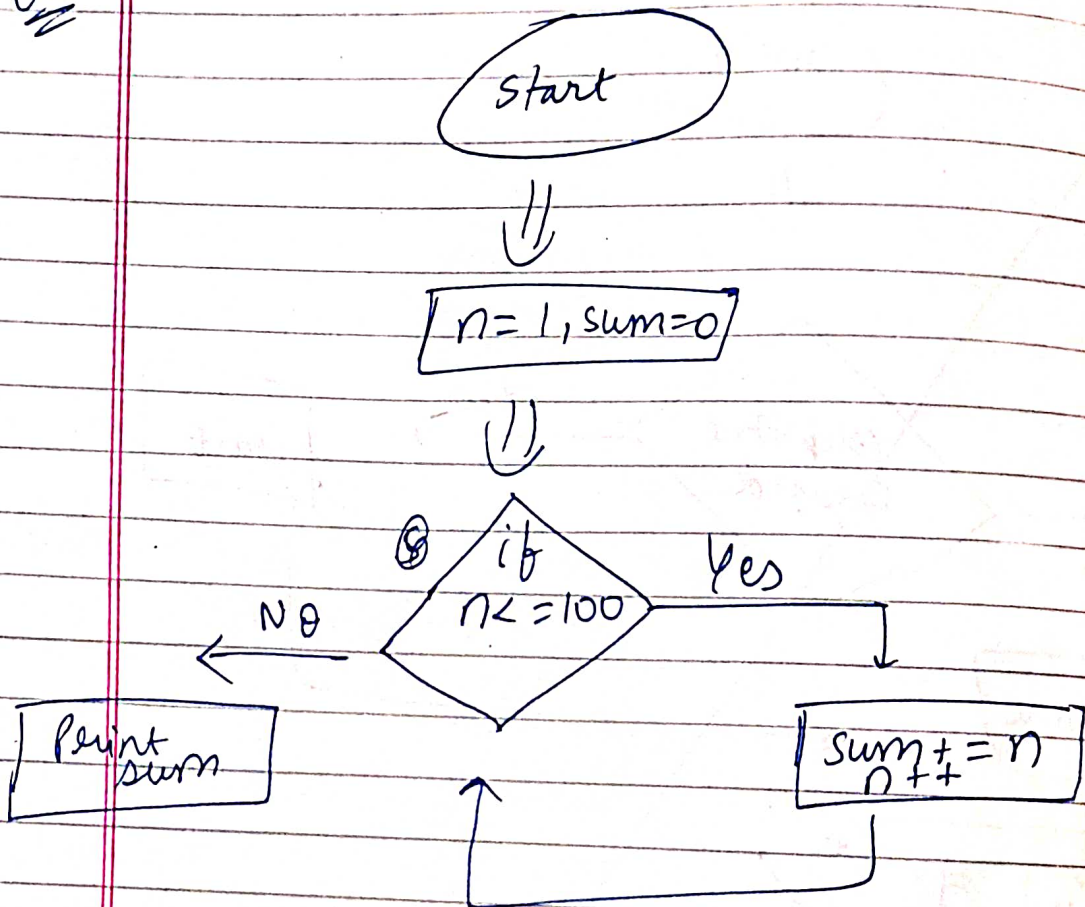 Start
n=1, sum=0
if
n<=100
Yes
No
Print
sum
sum+=n
n++